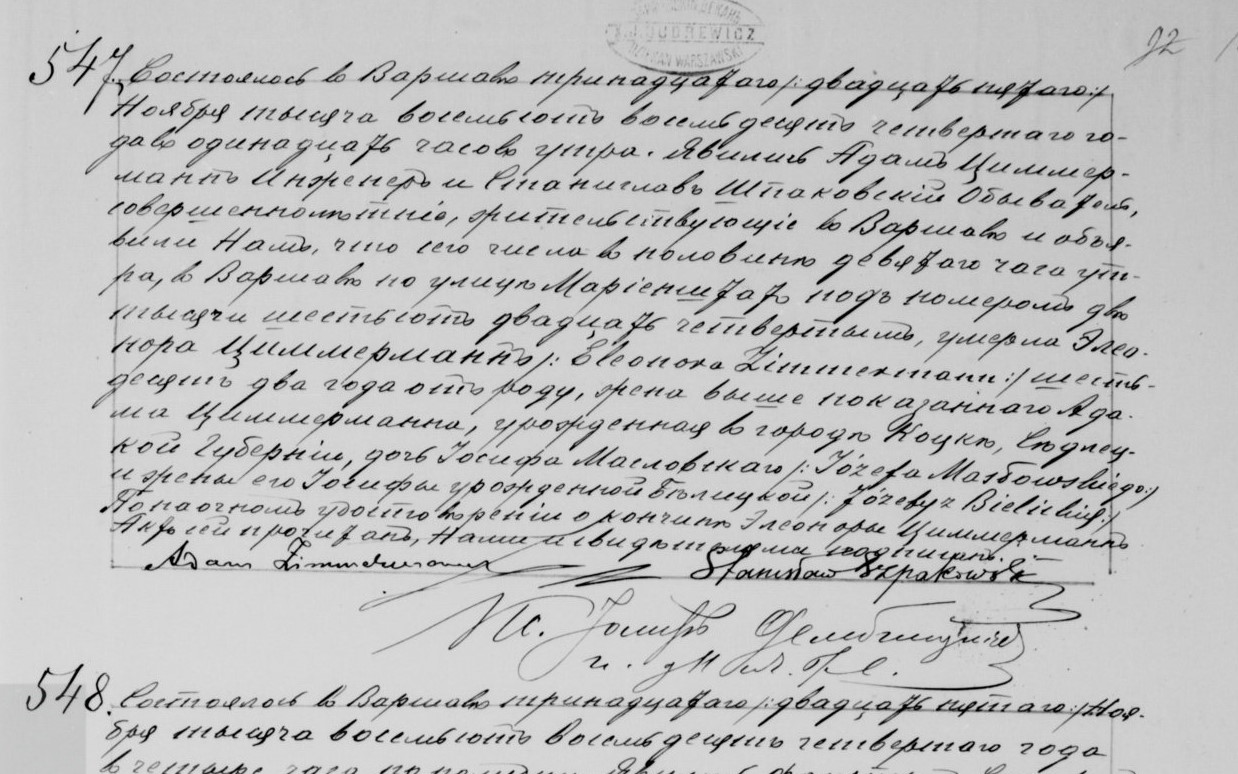 J. DUDREWICZ
DZIEKAN WARSZAWSKI
92
547. Состоялось въ Варшавѣ тринадцатаго /: двадцать пятаго :/
Ноября тысяча восемьсотъ восемьдесятъ четвертаго го-
да въ одинадцать часовъ утра. Явились Адамъ Циммер-
манъ Инженеръ и Станиславъ Шпаковскій Обыватель,
совершеннолѣтніе, жительствующіе въ Варшавѣ и объя-
вили Намъ, что сего числа въ половинѣ девятаго часа ут-
ра, въ Варшавѣ по улицѣ Маріенштатъ подъ номеромъ двѣ
тысячи шестьсотъ двадцать четвертымъ, умерла Элео-
нора Циммерманнъ /: Eleonora Zimmermann :/ шесть-
десятъ два года отъ роду, жена выше показаннаго Ада-
ма Циммерманна, урожденная въ городѣ Коцкѣ, Сѣдлец-
кой Губерніи, дочь Іосифа Масловскаго /: Józefa Masłowskiego :/
и жены его Іосифы урожденной Бѣлицкой /: Józefy z Bielickich :/
По наочномъ удостовѣреніи о кончинѣ Элеоноры Циммерманнъ
Актъ сей прочитанъ, Нами и свидѣтелями подписанъ.
Adam Zimmermann Stanisław Szpakowski
Кс.
548. Состоялось въ Варшавѣ тринадцатаго /: двадцать пятаго :/ Ноя-
бря тысяча восемьсотъ восемьдесятъ четвертаго года
въ четыре часа по полудни. Явились